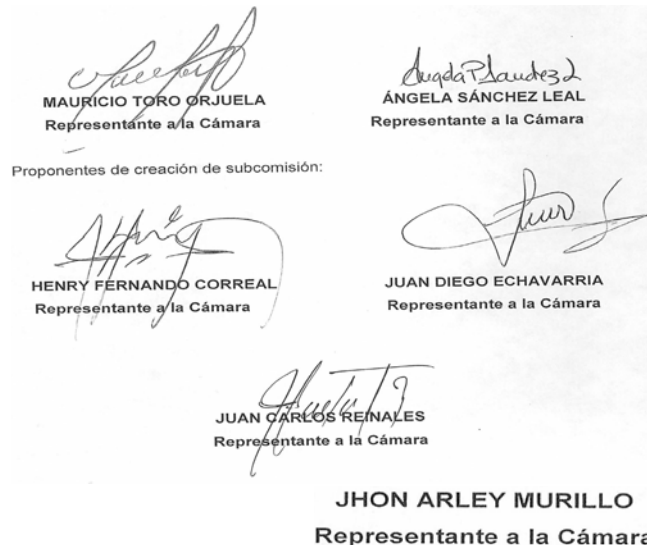 Angela P Sanchez L
MAURICIO TORO ORJUELA
Representante a la Cámara
ÁNGELA SÁNCHEZ LEAL
Representante a la Cámara
Proponentes de creación de subcomisión:
HENRY FERNANDO CORREAL
Representante a la Cámara
JUAN DIEGO ECHAVARRIA
Representante a la Cámara
JUAN CARLOS REINALES
Representante a la Cámara
JHON ARLEY MURILLO
Representante a la Cámara